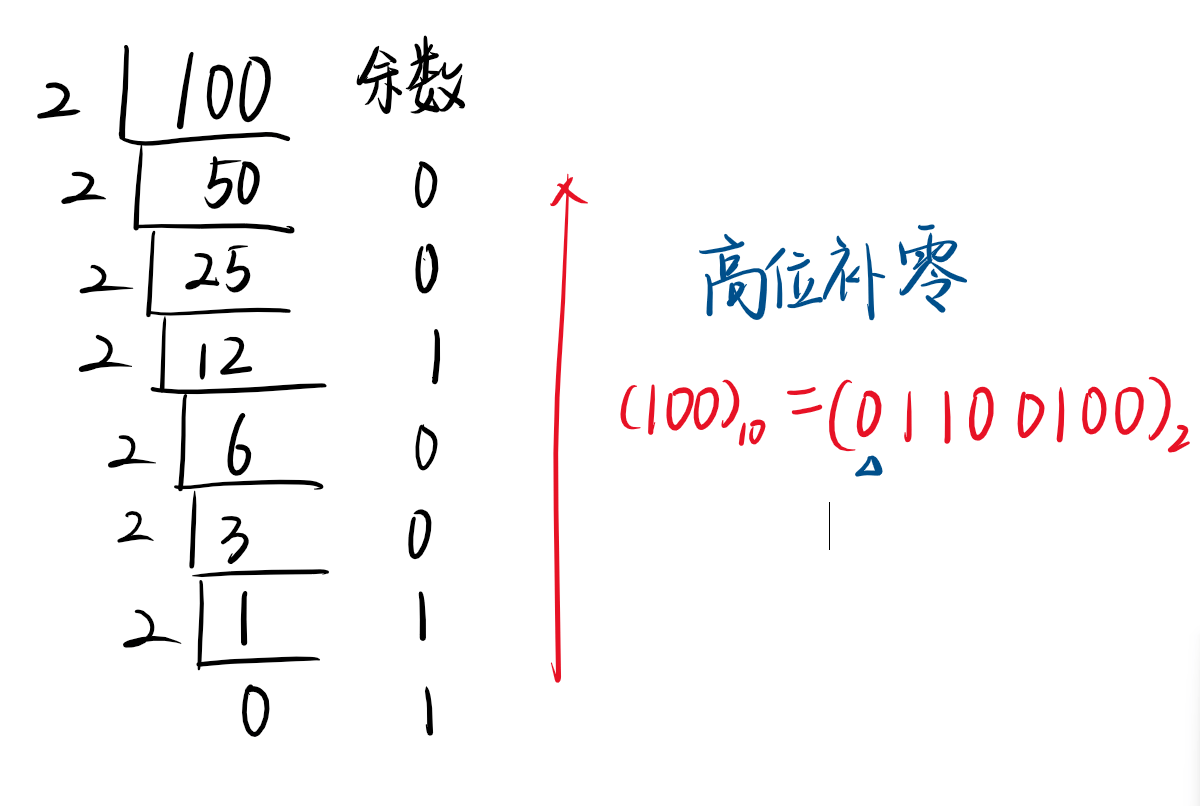 2 100 余数
2 50 0
2 25 0
2 12 1
2 6 0
2 3 0
2 1 1
0 1
高位补零
(100)₁₀ = (01100100)₂